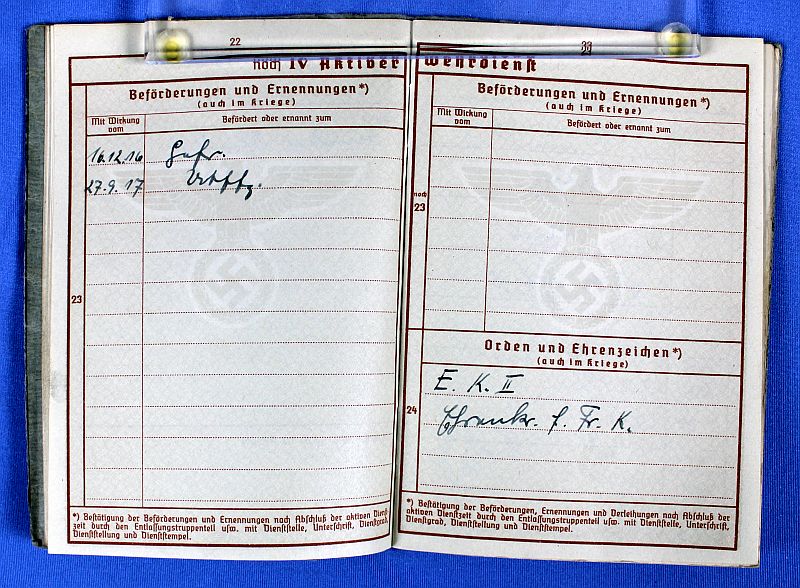 22
noch IV Aktiver
Beförderungen und Ernennungen*)
(auch im Kriege)
Mit Wirkung
vom
Befördert oder ernannt zum
16.12.16 Gefr.
27.9.17 Utffz.
23
*) Bestätigung der Beförderungen und Ernennungen nach Abschluß der aktiven Dienst-
zeit durch den Entlassungstruppenteil usw. mit Dienststelle, Unterschrift, Dienstgrad,
Dienststellung und Dienststempel.
Wehrdienst
Beförderungen und Ernennungen*)
(auch im Kriege)
Mit Wirkung
vom
Befördert oder ernannt zum
noch
23
Orden und Ehrenzeichen*)
(auch im Kriege)
24
E. K. II
Ehrenkr. f. Fr. K.
*) Bestätigung der Beförderungen, Ernennungen und Verleihungen nach Abschluß der
aktiven Dienstzeit durch den Entlassungstruppenteil usw. mit Dienststelle, Unterschrift,
Dienstgrad, Dienststellung und Dienststempel.